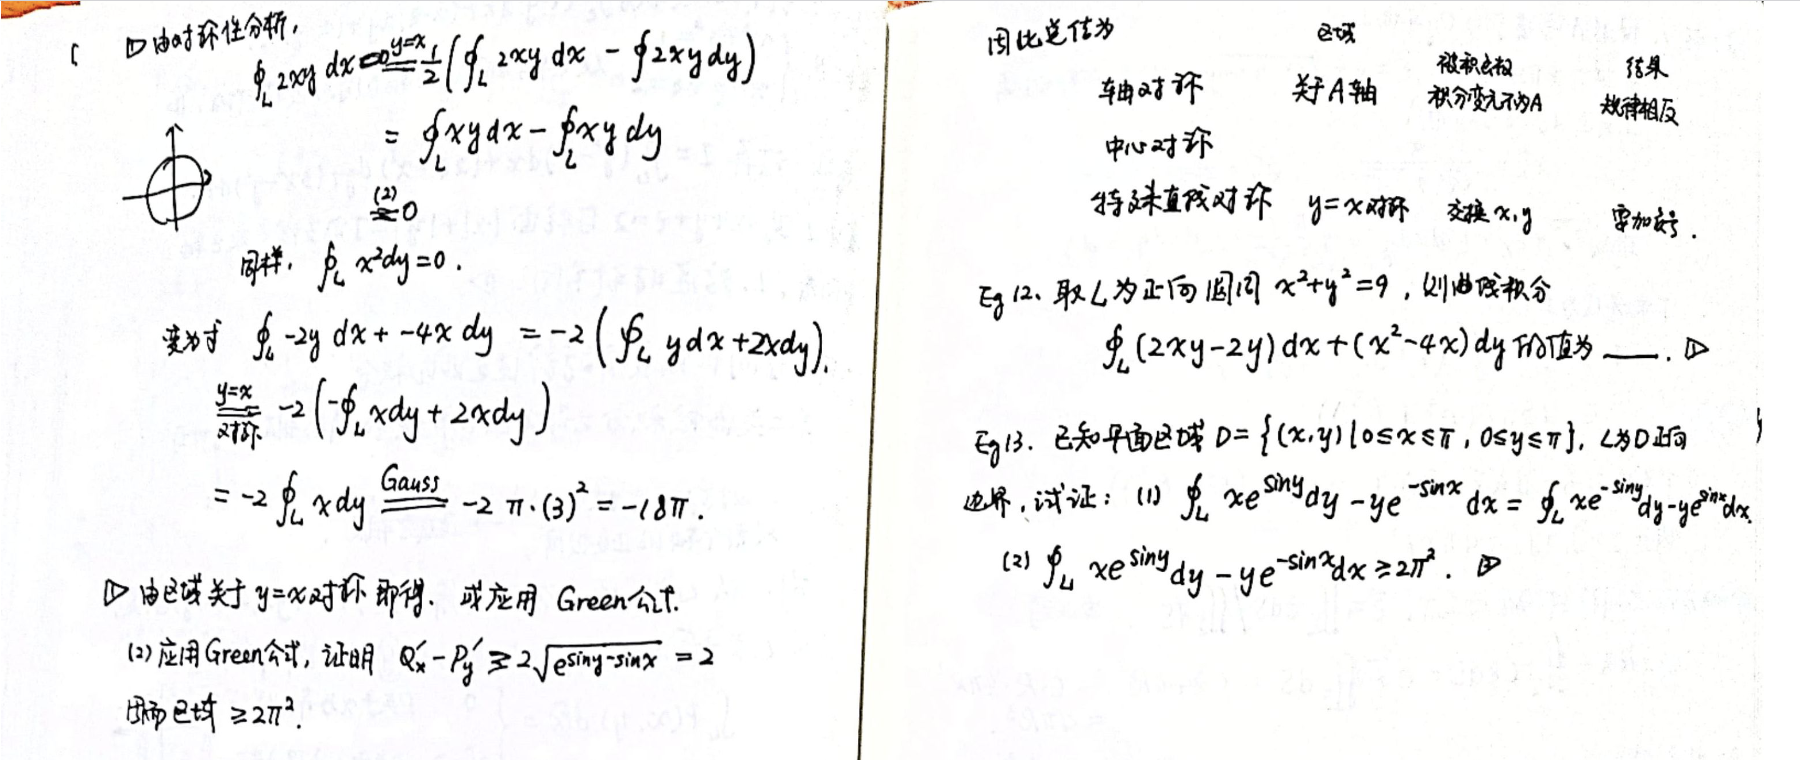 ▷ 由对称性分析，
∮_L 2xy dx = 0 \xlongequal{y=x} \frac{1}{2}(∮_L 2xy dx - ∮ 2xy dy)
= ∮_L xy dx - ∮_L xy dy
\xlongequal{(2)} 0
同样，∮_L x² dy = 0．
变为求 ∮_L -2y dx + -4x dy = -2(∮_L y dx + 2x dy)．
\xlongequal[对称]{y=x} -2(-∮_L x dy + 2x dy)
= -2 ∮_L x dy \xlongequal{Gauss} -2 π·(3)² = -18π．
▷ 由区域关于 y=x 对称 即得．或应用 Green公式．
(2) 应用Green公式，证明 Q'_x - P'_y ≥ 2\sqrt{e^{siny-sinx}} = 2
因而区域 ≥ 2π²．
因此总结为
区域 被积函数 结果
轴对称 关于A轴 积分变元不为A 规律相反
中心对称
特殊直线对称 y=x对称 交换 x,y 要加负号．
Eg 12、取 L 为正向圆周 x²+y²=9，则曲线积分
∮_L (2xy-2y) dx + (x²-4x) dy 的值为 ___．▷
Eg 13．已知平面区域 D = {(x,y) | 0≤x≤π, 0≤y≤π}，L为D正向
边界，试证：(1) ∮_L xe^{siny} dy - ye^{-sinx} dx = ∮_L xe^{-siny} dy - ye^{sinx} dx．
(2) ∮_L xe^{siny} dy - ye^{-sinx} dx ≥ 2π²．▷